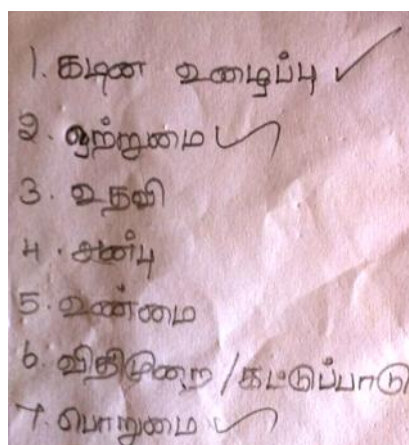 1. கடின உழைப்பு ✓
2. ஒற்றுமை ✓
3. உதவி
4. அன்பு
5. உண்மை
6. விதிமுறை / கட்டுப்பாடு
7. பொறுமை ✓